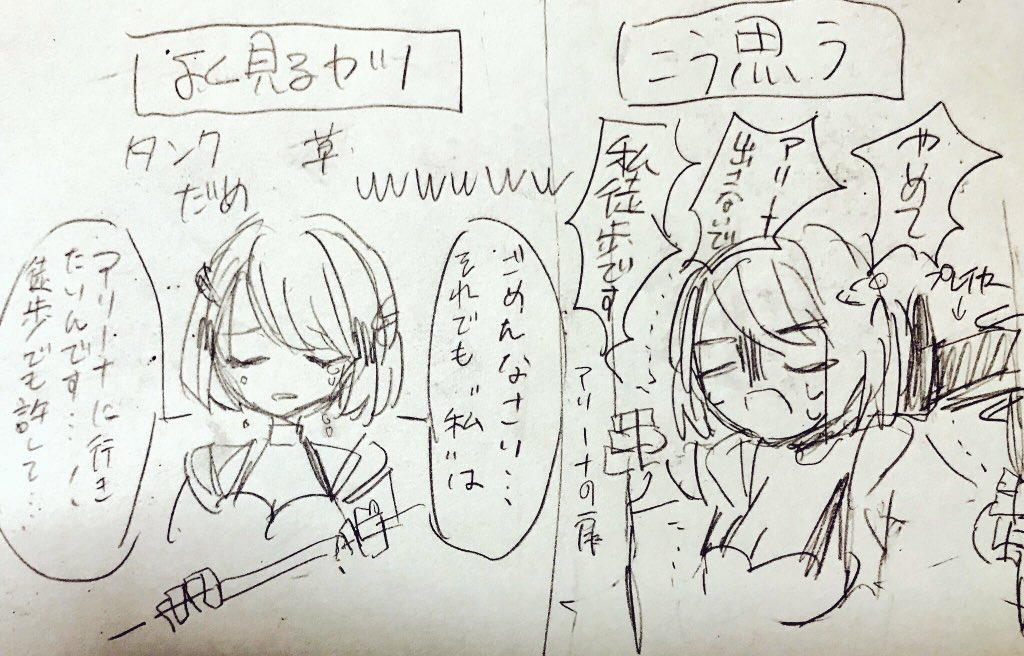 よく見るヤツ
タンク
だめ
草
wwwwww
ごめんなさい…
それでも"私"は
アリーナに行き
たいんです…!
徒歩でも許して…
こう思う
やめて
アリーナ
出さないで
私徒歩です
プレイヤー
アリーナの扉